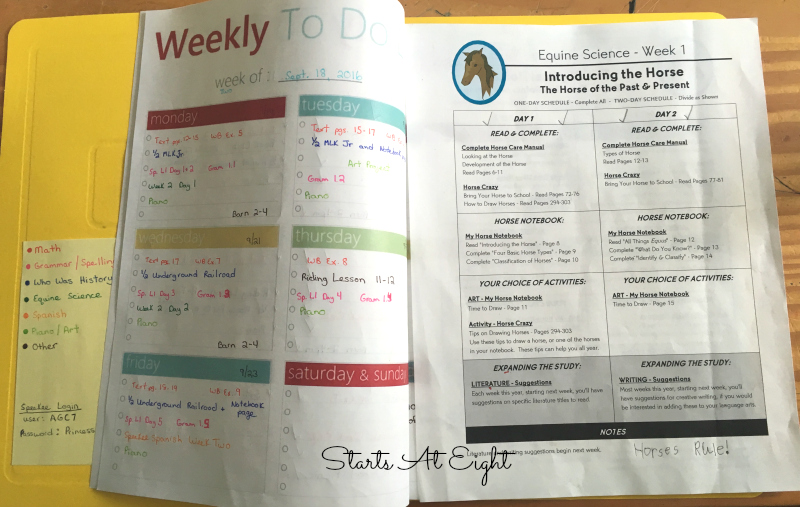 Weekly To Do
week of : Sept. 18, 2016
monday
WB Ex. 5
1/2 MLK Jr
Sp. L1 Day 1+2 Gram 1.1
Week 2 Day 1
Piano
Barn 2-4
tuesday
Text pgs. 15-17
1/2 MLK Jr and Notebook
Gram 1.2
Piano
wednesday 9/21
Text pg. 17 WB Ex 7
1/2 Underground Railroad
Sp. L1 Day 3 Gram 1.3
Week 2 Day 2
Piano
Barn 2-4
thursday
WB Ex. 8
Riding Lesson 11-12
Sp. L1 Day 4 Gram 1.4
Piano
friday 9/23
WB Ex. 9
1/2 Underground Railroad + Notebook
page
Sp. L1 Day 5 Gram 1.5
Spanish Week Two
Piano
saturday & sunday
Math
Grammar/Spelling
Who Was History
Equine Science
Spanish
Piano/Art
Other
Speekee Login
user: AGC7
Password: Princess
Equine Science - Week 1
Introducing the Horse
The Horse of the Past & Present
ONE-DAY SCHEDULE - Complete All - TWO-DAY SCHEDULE - Divide as Shown
DAY 1
READ & COMPLETE:
Complete Horse Care Manual
Looking at the Horse
Development of the Horse
Read Pages 6-11
Horse Crazy
Bring Your Horse to School - Read Pages 72-76
How to Draw Horses - Read Pages 294-303
HORSE NOTEBOOK:
My Horse Notebook
Read "Introducing the Horse" - Page 8
Complete "Four Basic Horse Types" - Page 9
Complete "Classification of Horses" - Page 10
YOUR CHOICE OF ACTIVITIES:
ART - My Horse Notebook
Time to Draw - Page 11
Activity - Horse Crazy
Tips on Drawing Horses - Pages 294-303
Use these tips to draw a horse, or one of the horses
in your notebook. These tips can help you all year.
EXPANDING THE STUDY:
LITERATURE - Suggestions
Each week this year, starting next week, you'll have
suggestions on specific literature titles to read.
DAY 2
READ & COMPLETE:
Complete Horse Care Manual
Types of Horse
Read Pages 12-13
Horse Crazy
Bring Your Horse to School - Read Pages 77-81
HORSE NOTEBOOK:
My Horse Notebook
Read "All Things Equus" - Page 12
Complete "What Do You Know?" - Page 13
Complete "Identify & Classify" - Page 14
YOUR CHOICE OF ACTIVITIES:
ART - My Horse Notebook
Time to Draw - Page 15
EXPANDING THE STUDY:
WRITING - Suggestions
Most weeks this year, starting next week, you'll
have suggestions for creative writing, if you would
be interested in adding these to your language arts.
NOTES
suggestions begin next week.
Horses Rule!
Starts At Eight